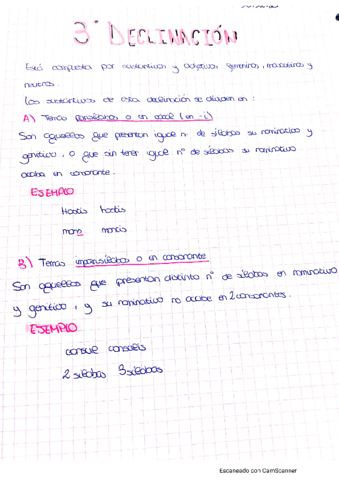 3ª DECLINACIÓN
Está compuesta por sustantivos y adjetivos, femeninos, masculinos y
neutros.
Los sustantivos de esta declinación se dividen en :
A) Temas parisílabos o en vocal (en -i)
Son aquellos que presentan igual nº de sílabas su nominativo y
genitivo, o que sin tener igual nº de sílabas su nominativo
acaba en consonante.
EJEMPLO
Hostis hostis
mons montis
B) Temas imparisílabos o en consonante
Son aquellos que presentan distinto nº de sílabas en nominativo
y genitivo, y su nominativo no acabe en 2 consonantes.
EJEMPLO
consul consulis
2 sílabas 3 sílabas
Escaneado con CamScanner